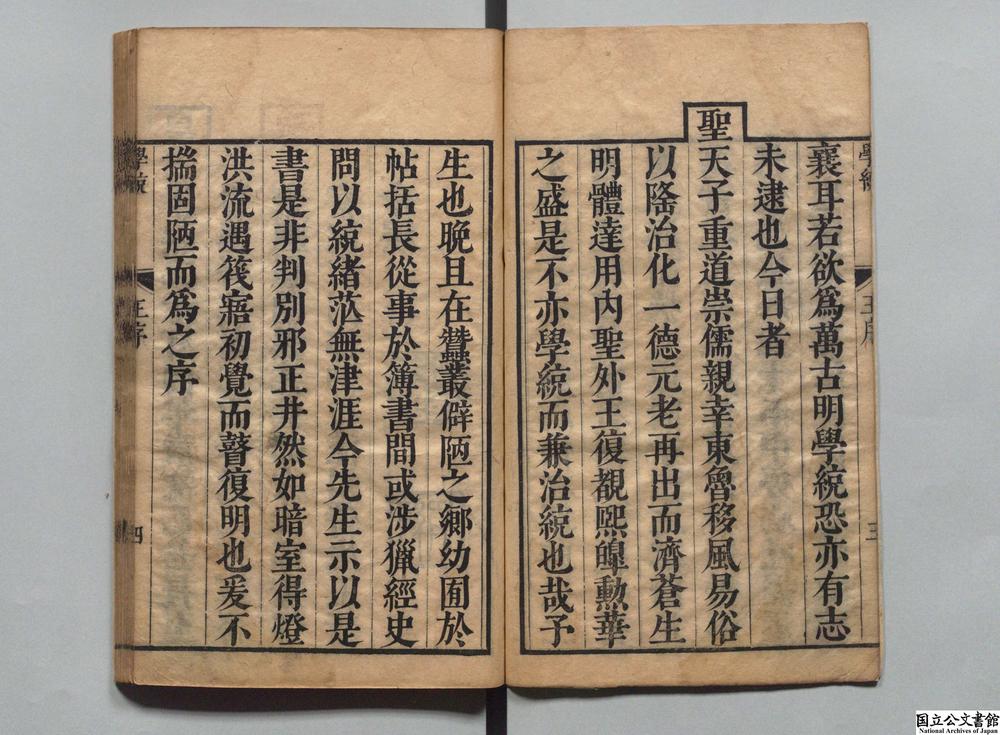 襄耳若欲爲萬古明學統恐亦有志
未逮也今日者
聖天子重道崇儒親幸東魯移風易俗
以隆治化一德元老再出而濟蒼生
明體達用內聖外王復覩熙皥勲華
之盛是不亦學統而兼治統也哉予
學統
王序
三
生也晚且在蠶叢僻陋之鄉幼囿於
帖括長從事於簿書間或涉獵經史
問以統緒茫無津涯今先生示以是
書是非判別邪正井然如暗室得燈
洪流遇筏寤初覺而瞽復明也爰不
揣固陋而爲之序
學統
王序
四
国立公文書館
National Archives of Japan